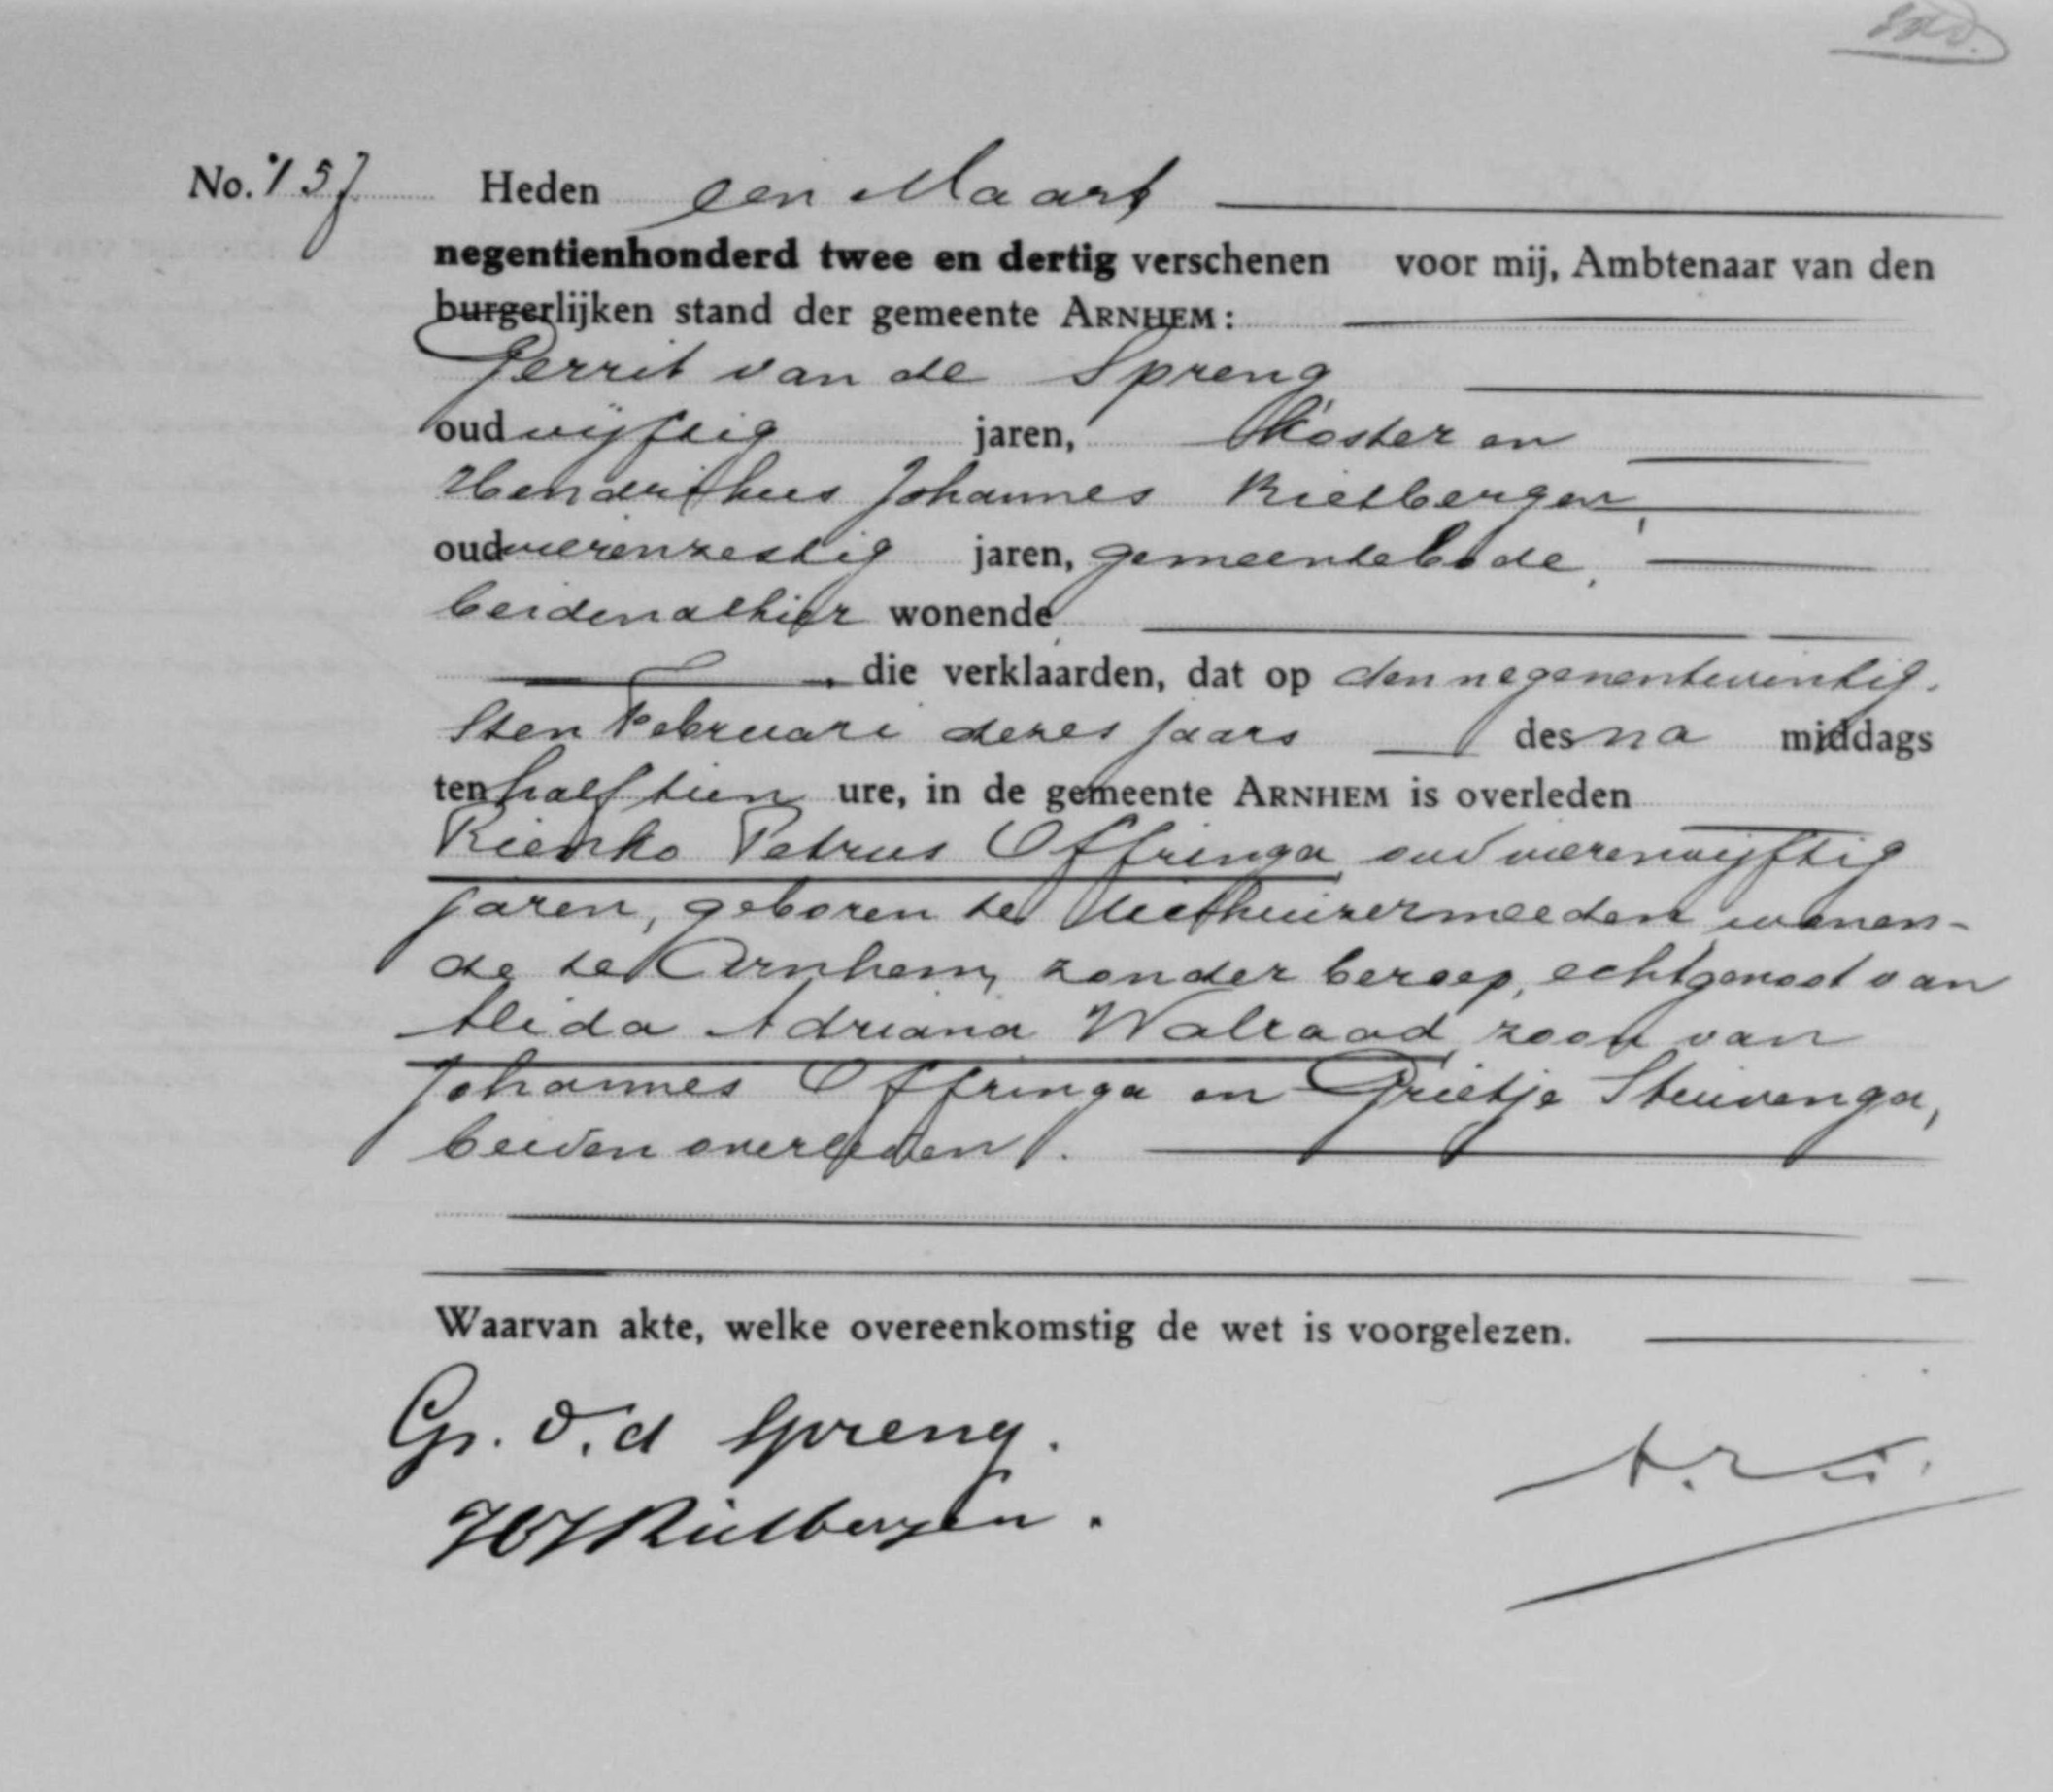 No. 157 Heden een Maart
negentienhonderd twee en dertig verschenen voor mij, Ambtenaar van den
burgerlijken stand der gemeente ARNHEM:
Gerrit van de Spreng
oud vijftig jaren, koster en
Hendrikus Johannes Rietbergen,
oud vierenzestig jaren, gemeentebode,
beiden alhier wonende
die verklaarden, dat op den negenentwintig-
sten Februari dezes jaars des na middags
ten half tien ure, in de gemeente ARNHEM is overleden
Rienko Petrus Offringa, oud vierenvijftig
jaren, geboren te Uithuizermeeden wonen-
de te Arnhem, zonder beroep, echtgenoot van
Alida Adriana Walraad, zoon van
Johannes Offringa en Grietje Stuivenga,
beiden overleden.
Waarvan akte, welke overeenkomstig de wet is voorgelezen.
Gr. v. d Spreng.
HJRietbergen.